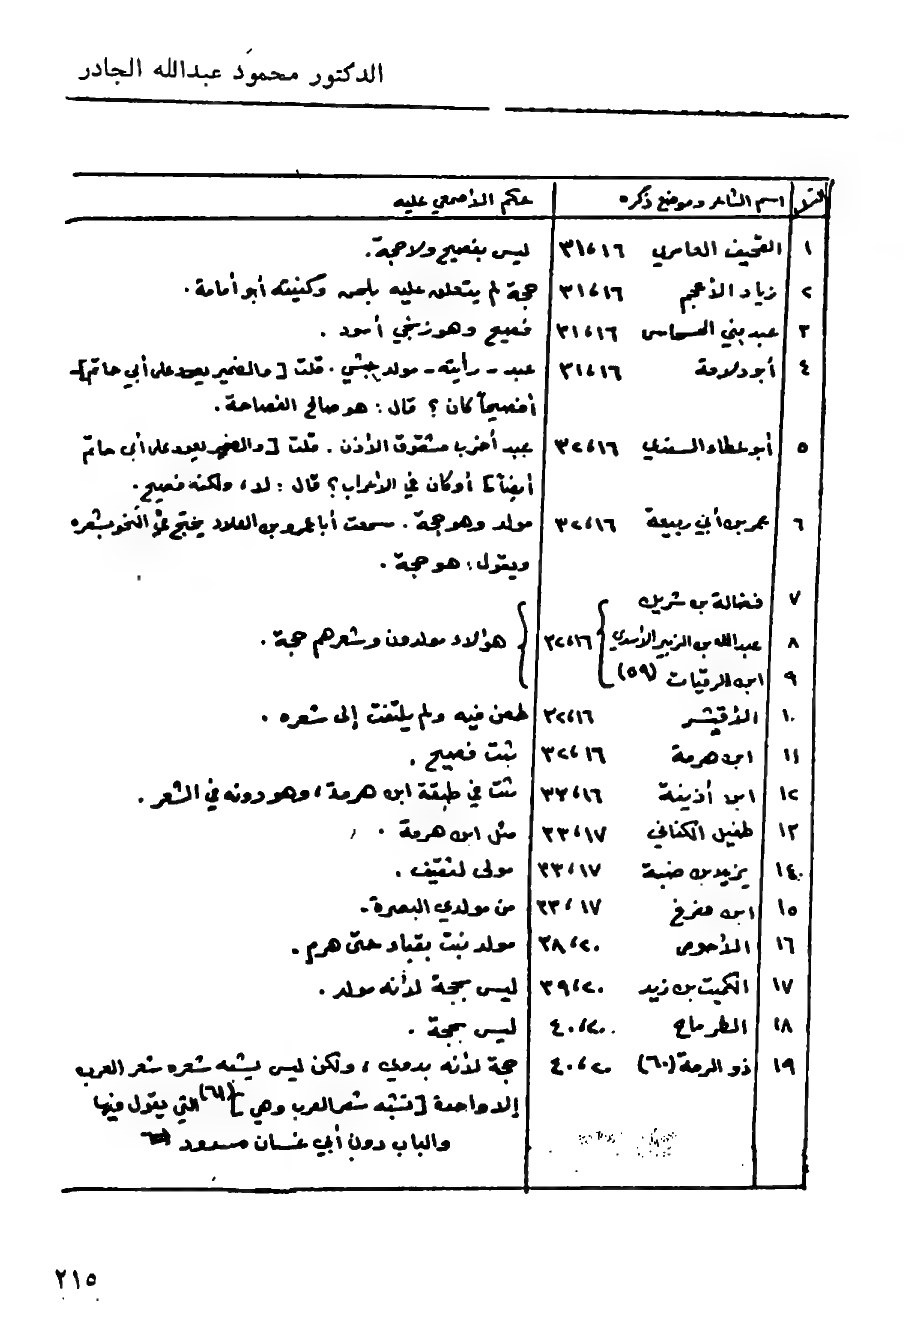 الدكتور محمود عبدالله الجادر
اسم الشاعر وموضع ذكره حكم الأصمعي عليه
١ القحيف العامري ١٦، ٣١ ليس بفصيح ولا حجة.
٢ زياد الأعجم ١٦، ٣١ حجة لم يتعلق عليه بلحن وكنيته أبو أمامة.
٣ عبد بني الحسحاس ١٦، ٣١ فصيح وهو زنجي أسود.
٤ أبو دلامة ١٦، ٣١ عبد - رأيته - مولد حبشي. قلت [والضمير يعود على أبي حاتم] -
أفصيحاً كان؟ قال: هو صالح الفصاحة.
٥ أبو عطاء السندي ١٦، ٣٢ عبد أخرب مشقوق الأذن. قلت [والضمير يعود على أبي حاتم
أيضاً] أو كان في الأعراب؟ قال: لا، ولكنه فصيح.
٦ عمر بن أبي ربيعة ١٦، ٣٢ مولد وهو حجة. سمعت أبا عمرو بن العلاء يحتج في النحو بشعره
ويقول: هو حجة.
٧ فضالة بن شريك
٨ عبدالله بن الزبير الأسدي ١٦، ٣٢ هؤلاء مولدون وشعرهم حجة.
٩ ابن الرقيات (٥٩)
١٠ الأقيشر ١٦، ٣٢ طعن فيه ولم يلتفت إلى شعره.
١١ ابن هرمة ١٦، ٣٢ ثبت فصيح.
١٢ ابن أذينة ١٦، ٣٢ ثبت في طبقة ابن هرمة، وهو دونه في الشعر.
١٣ طفيل الكناني ١٧، ٣٣ مثل ابن هرمة.
١٤ يزيد بن ضبة ١٧، ٣٣ مولى لثقيف.
١٥ ابن مفرغ ١٧، ٣٣ من مولدي البصرة.
١٦ الأحوص ٢٠، ٣٨ مولد نبت بقباء حتى هرم.
١٧ الكميت بن زيد ٢٠، ٣٩ ليس بحجة لأنه مولد.
١٨ الطرماح ٢٠، ٤٠ ليس بحجة.
١٩ ذو الرمة (٦٠) ٢٠، ٤٠ حجة لأنه بدوي، ولكن ليس يشبه شعره شعر العرب
إلا واحدة [تشبه شعر العرب وهي] (٦١) التي يقول فيها
والباب دون أبي غسان مسدود
٢١٥